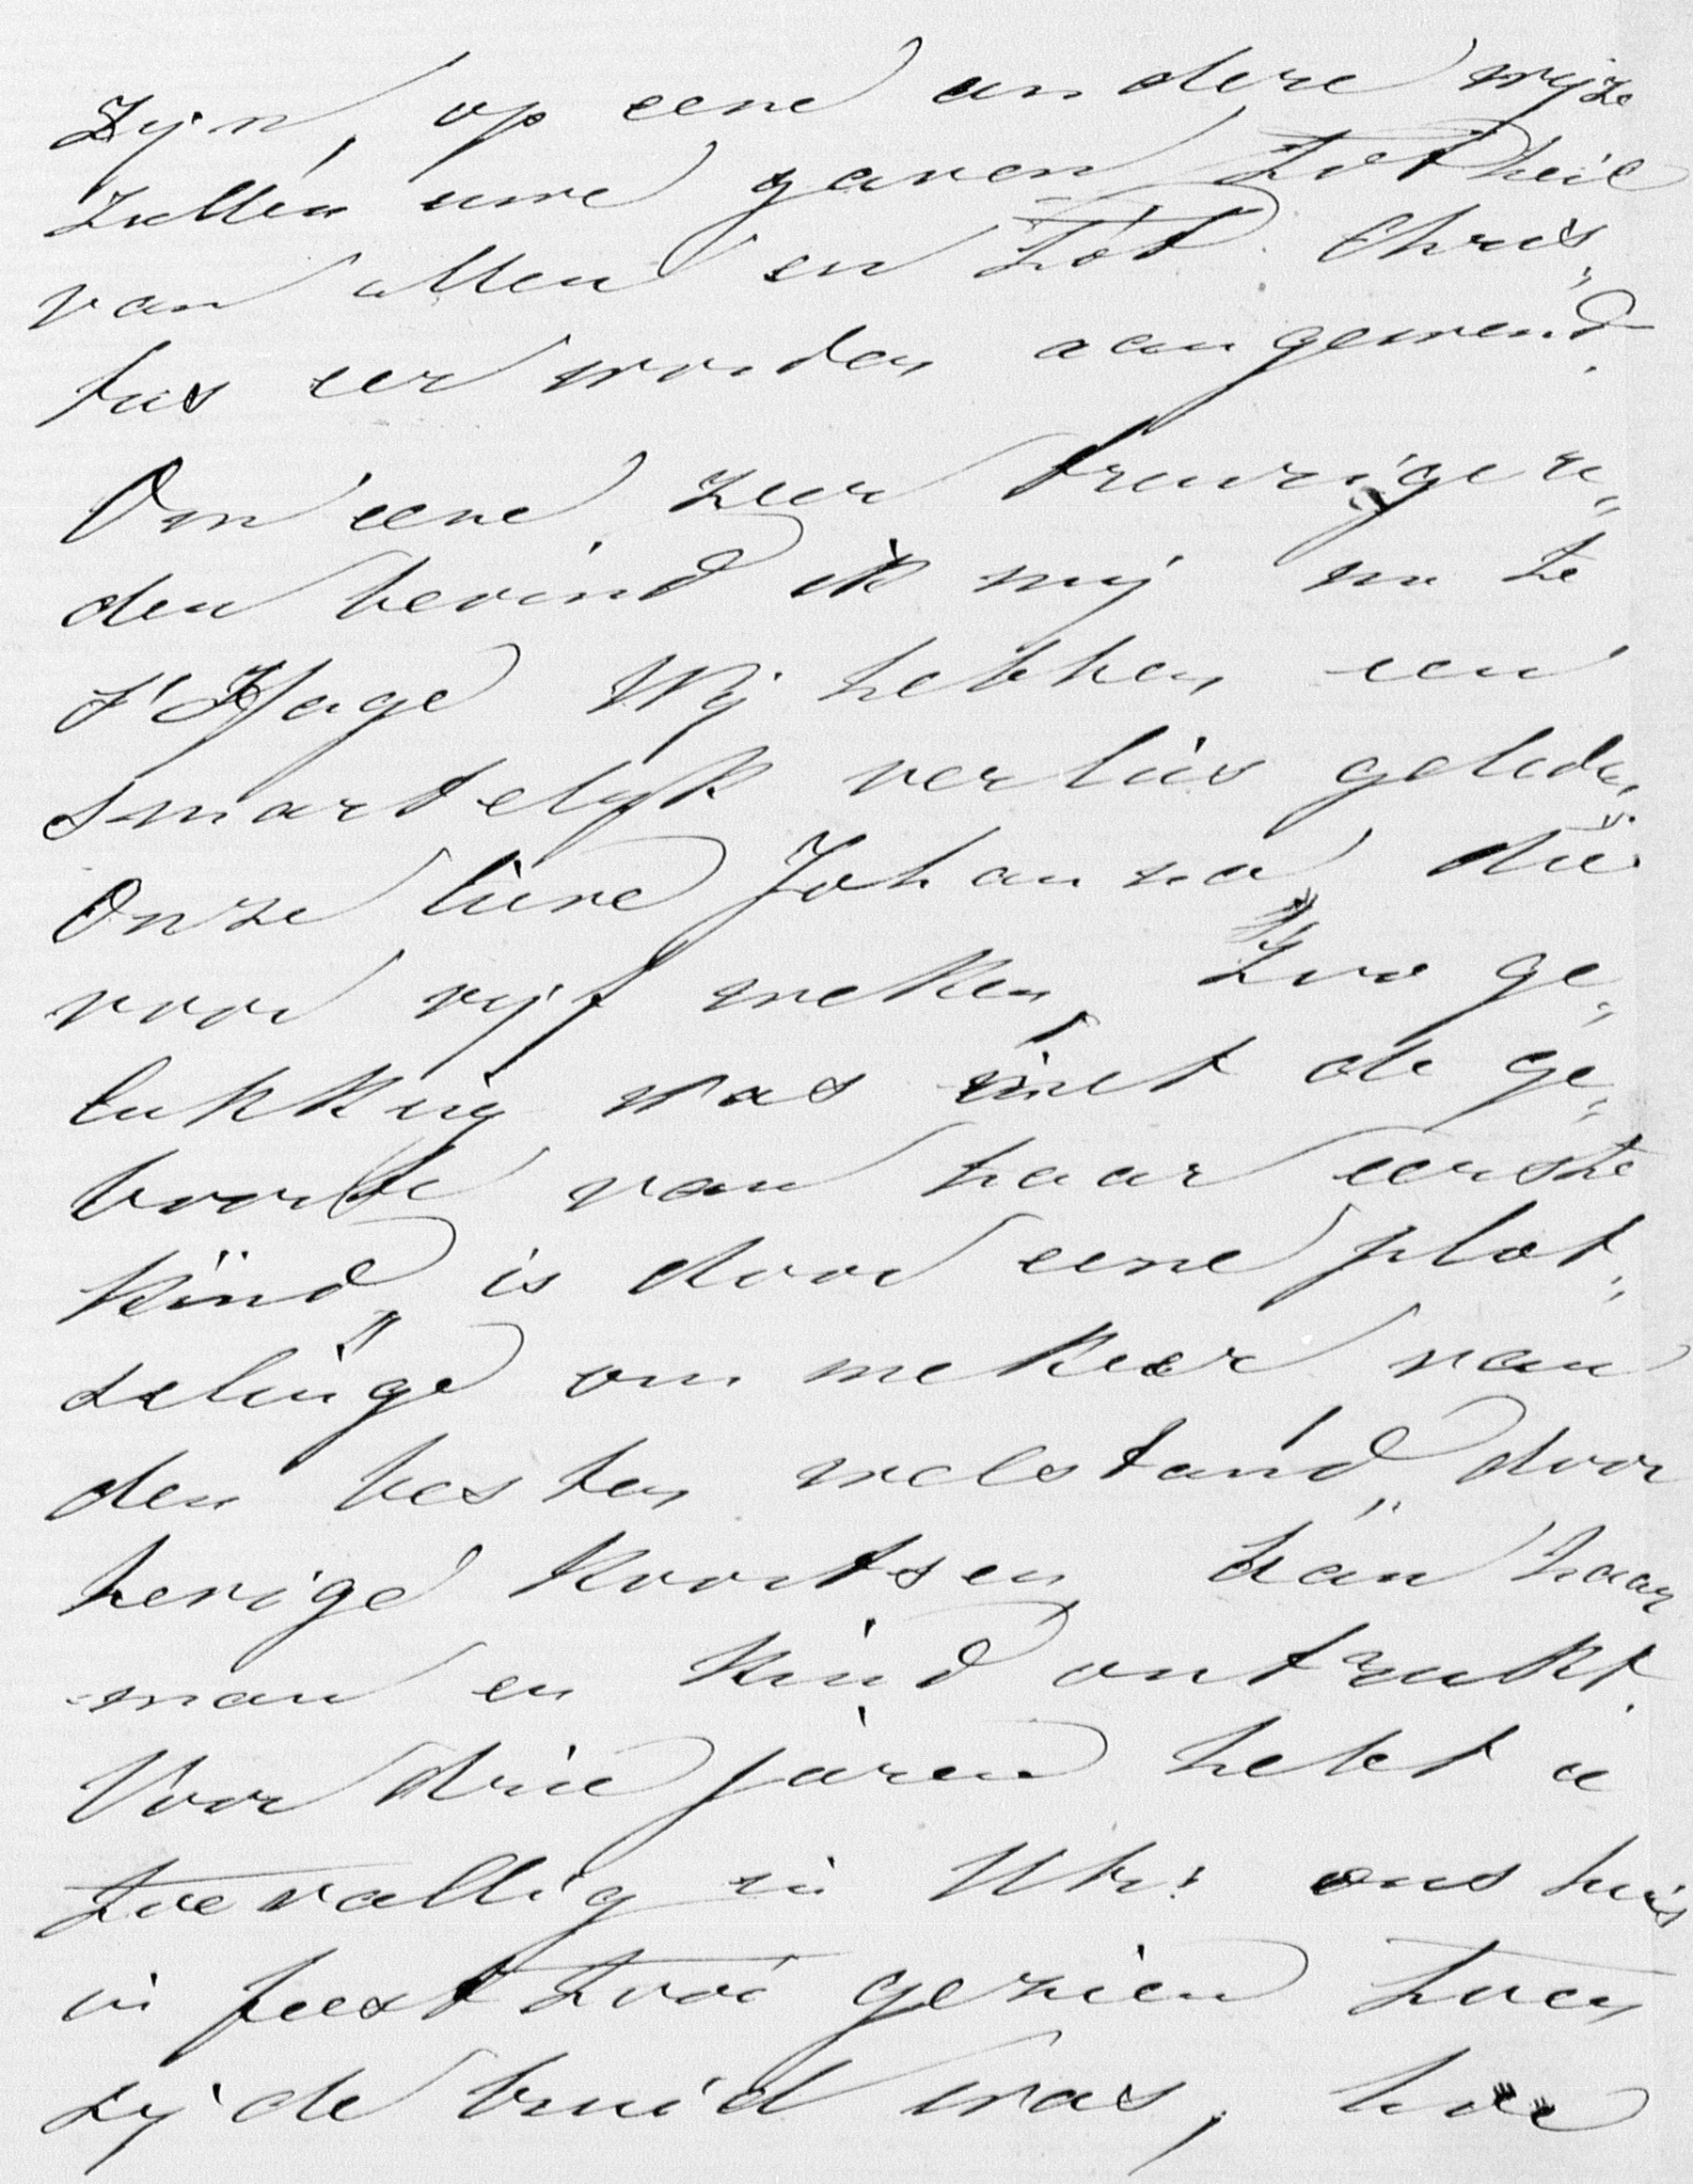 zijn, op eene andere wijze
zullen uwe gaven tot heil
van allen en tot Chris„
tus eer worden aangewend.
Om eene zeer treurige re„
den bevind ik mij nu te
s'Hage Wij hebben een
smartelijk verlies geleden,
onze lieve Johanna, die
voor vijf weken, zoo ge„
lukkig was met de ge„
boorte van haar eerste
kind, is door eene plot„
selinge ommekeer van
den besten welstand, door
hevige koortsen, aan haar
man en kind ontrukt.
Voor drie jaren hebt u
toevallig in Utr: ons huis
in feesttooi gezien toen
zij de bruid was, hoe